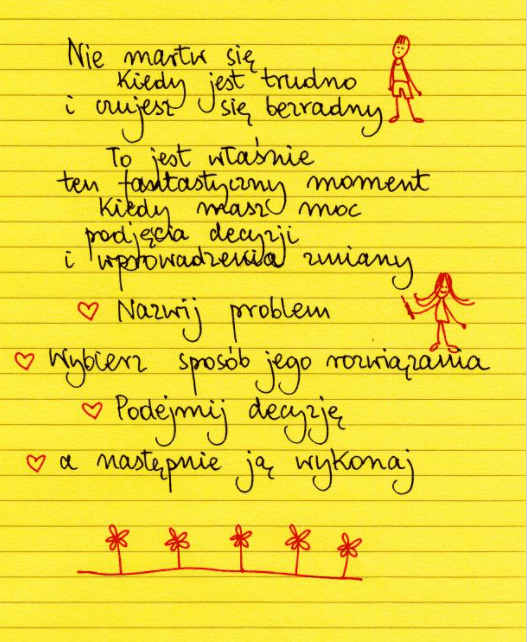 Nie martw się
Kiedy jest trudno
i czujesz się bezradny
To jest właśnie
ten fantastyczny moment
Kiedy masz moc
podjęcia decyzji
i wprowadzenia zmiany
Nazwij problem
Wybierz sposób jego rozwiązania
Podejmij decyzję
a następnie ją wykonaj